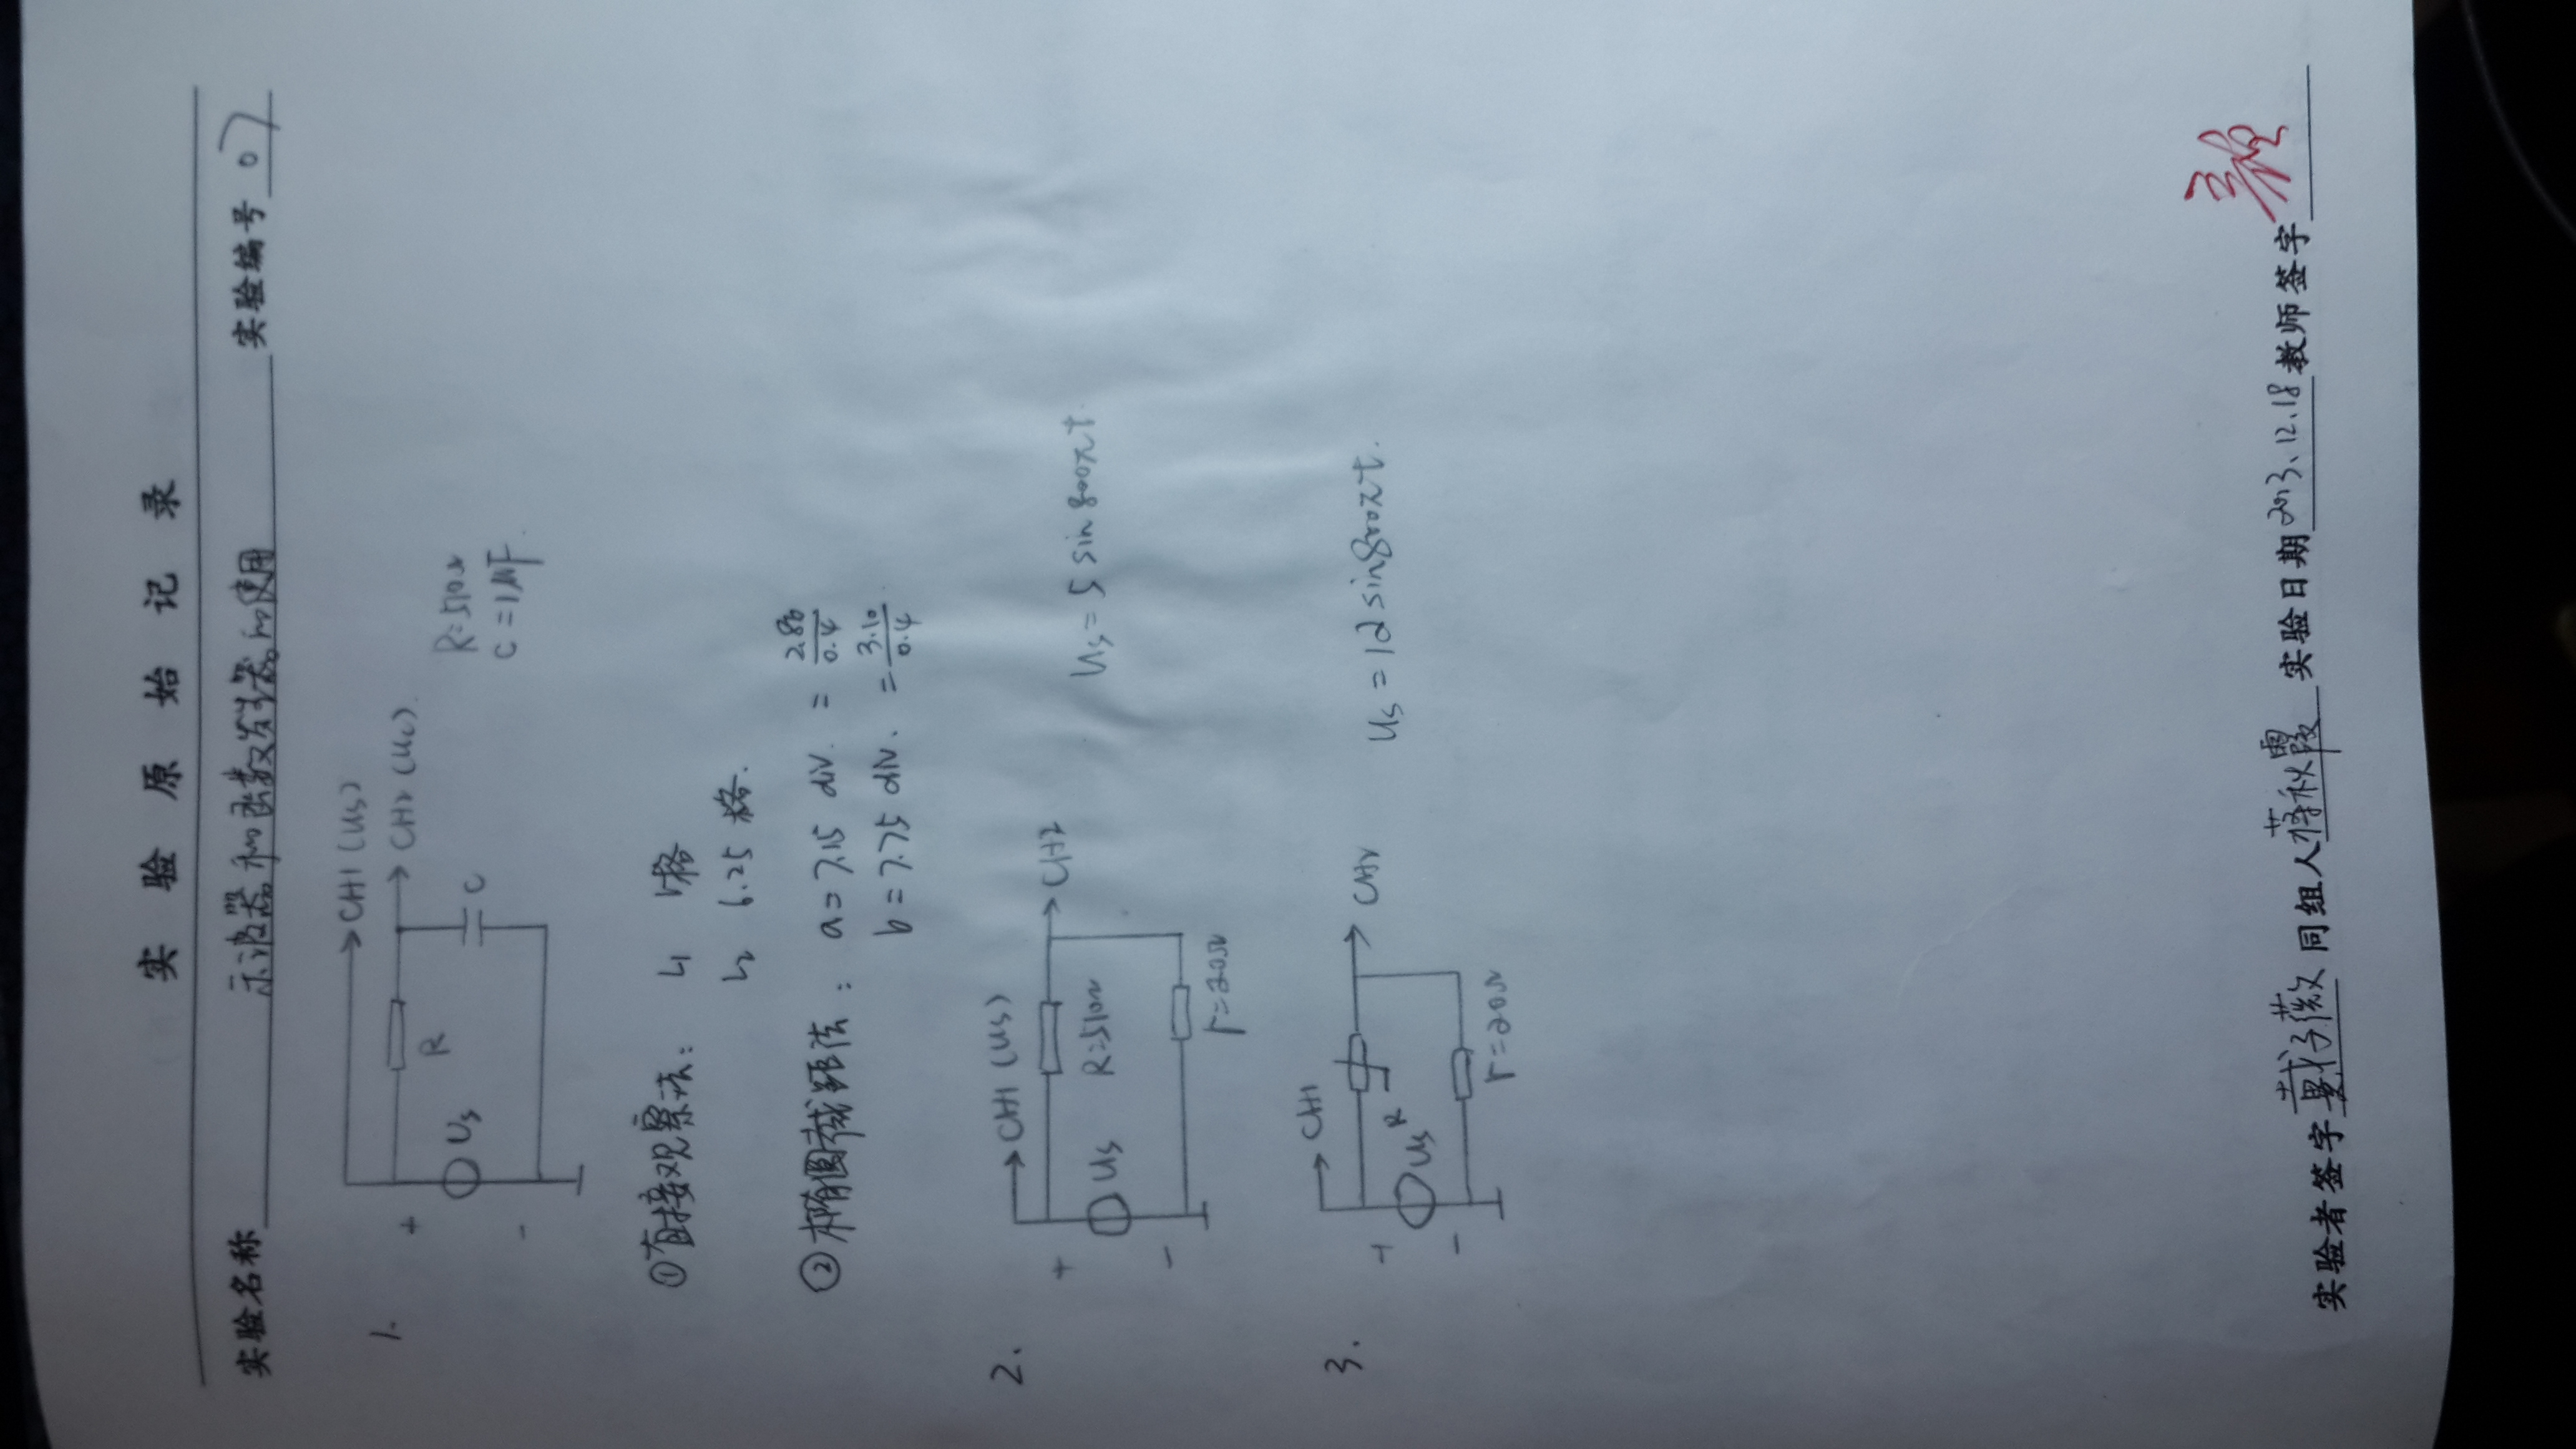 实验原始记录
实验名称 示波器和函数发生器的使用 实验编号 07
1.
CH1 (Us)
CH2 (Uc).
+
R
Us
C
-
R=510Ω
C=1μF.
①直接观察法: L1 1格
L2 6.25 格.
②椭圆截距法: a=7.15 div. = 2.86/0.4
b=7.75 div. = 3.10/0.4
2.
CH1 (Us)
+
CH2
Us
R=510Ω
-
r=20Ω
Us=5 sin 800πt.
3.
CH1
+
CH2
Us
R
-
r=20Ω
Us=12 sin 800πt.
实验者签字 戴子薇 同组人 蒋秋霞 实验日期 2013.12.18 教师签字